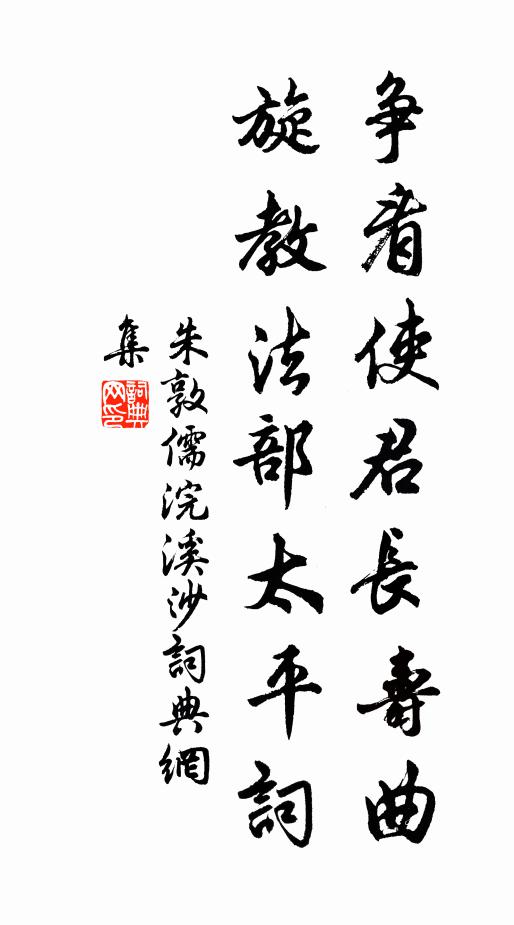 争看使君長壽曲
旋教法部太平詞
朱敦儒浣溪沙詞典網
集
詞典網印